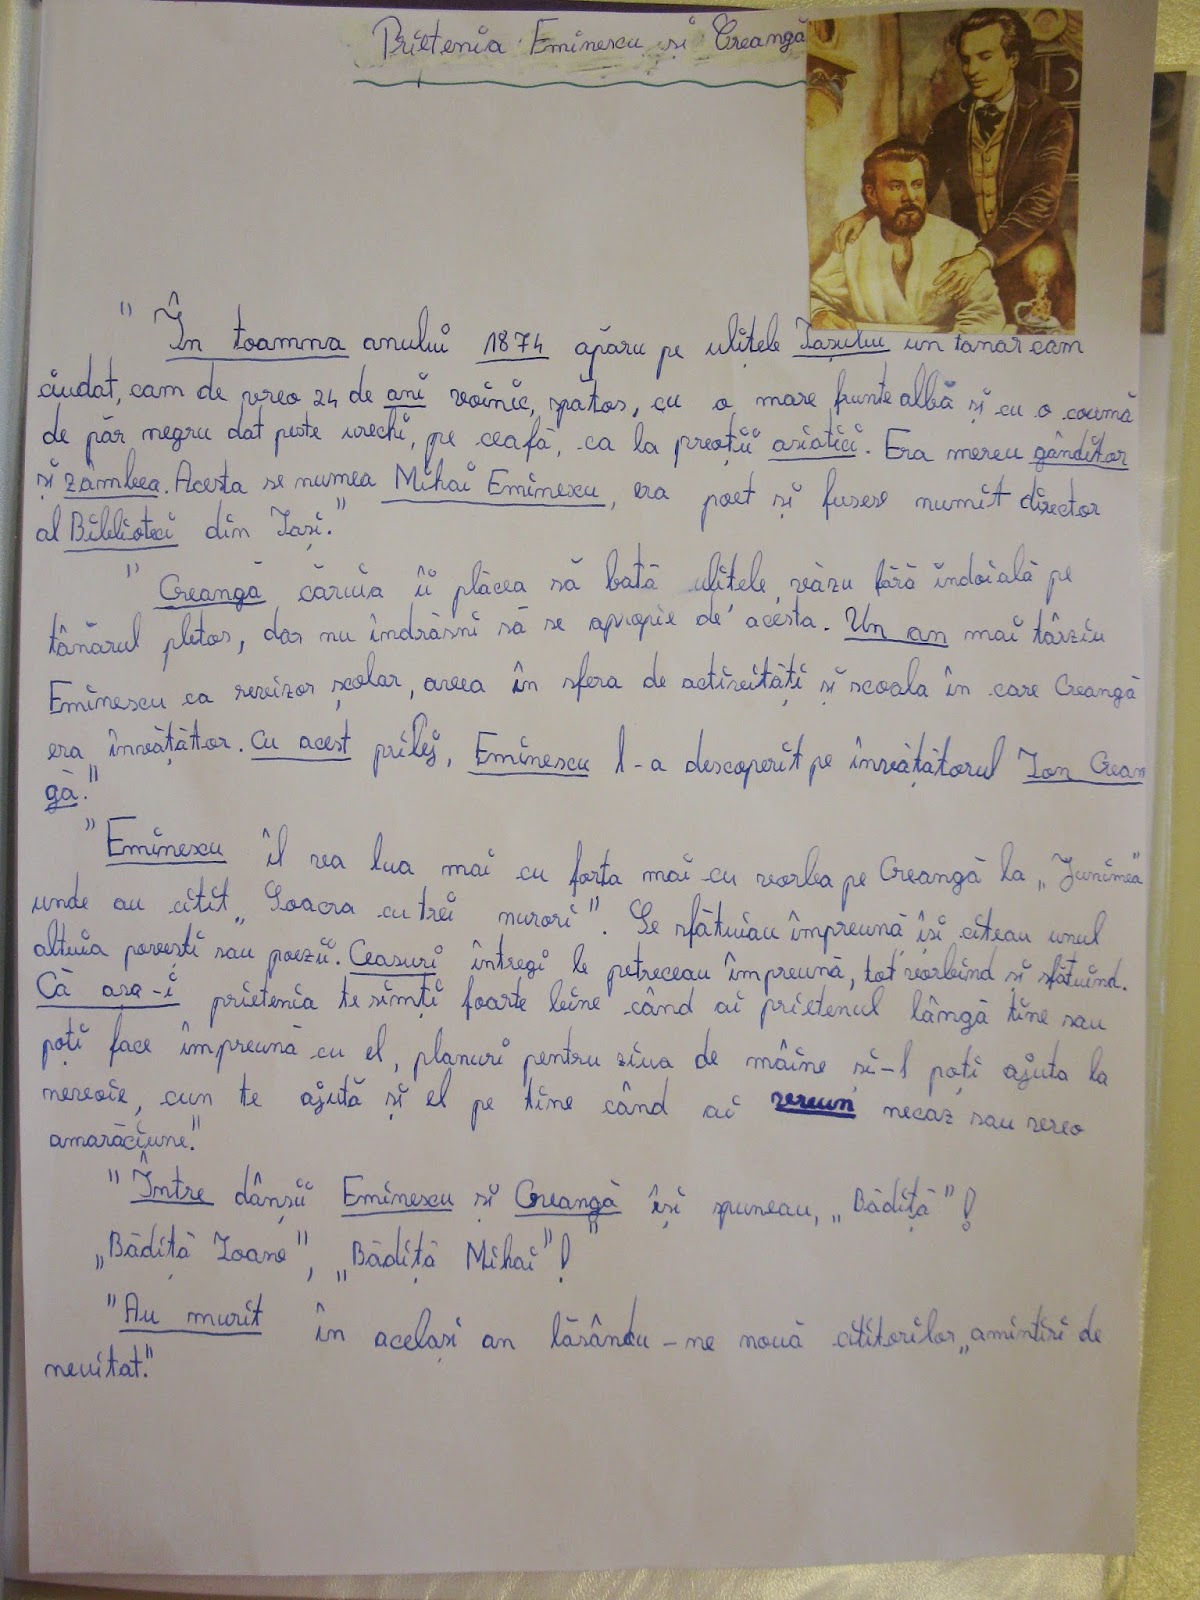 Prietenia Eminescu și Creangă
"În toamna anului 1874 apăru pe ulițele Iașului un tanar cam
ciudat, cam de vreo 24 de ani voinic, spătos, cu o mare frunte albă și cu o coamă
de păr negru dat peste urechi, pe ceafă, ca la preoții asiatici. Era mereu gânditor
și zâmbea. Acesta se numea Mihai Eminescu, era poet și fusese numit director
al Bibliotecii din Iași."
"Creangă căruia îi plăcea să bată ulitele, văzu fără îndoială pe
tânărul pletos, dar nu îndrăsni să se apropie de acesta. Un an mai târziu
Eminescu ca revizor școlar, avea în sfera de activități și scoala în care Creangă
era învățător. Cu acest prilej, Eminescu l-a descoperit pe învățătorul Ion Crean
gă."
"Eminescu îl va lua mai cu forta mai cu vorba pe Creangă la „Junimea"
unde au citit „Soacra cu trei nurori". Se sfătuiau împreună, își citeau unul
altuia povești sau poezii. Ceasuri întregi le petreceau împreună, tot vorbind și sfătuind.
Că așa-i prietenia te simți foarte bine când ai prietenul lângă tine sau
poți face împreună cu el, planuri pentru ziua de mâine și-l poți ajuta la
nevoie, cum te ajută și el pe tine când ai vreun necaz sau vreo
amarăciune."
"Între dânșii Eminescu și Creangă își spuneau, „Bădiță"!
„Bădiță Ioane", „Bădiță Mihai"!"
"Au murit în același an lăsându-ne nouă cititorilor „amintiri de
neuitat."